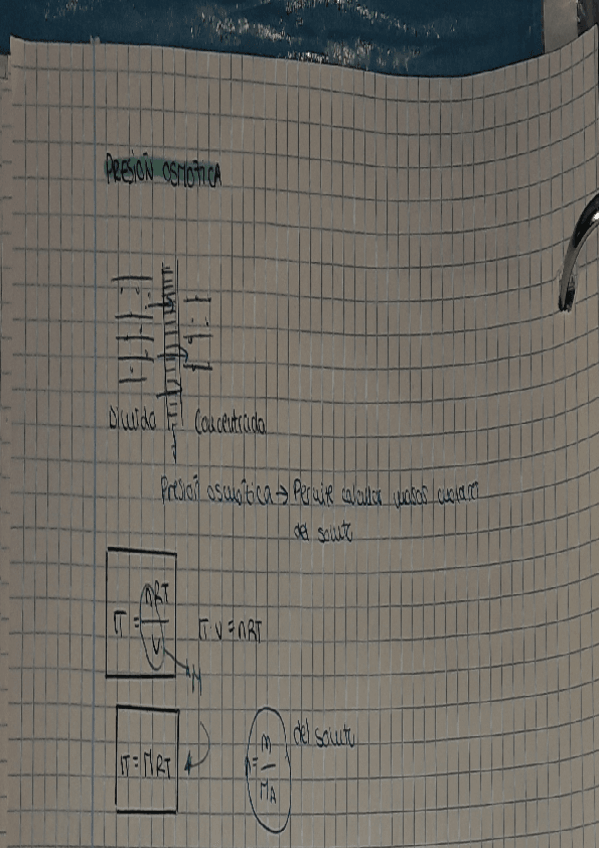 PRESIÓN OSMÓTICA
Diluido Concentrado
Presión osmótica → Permite calcular masas molares
del soluto
π = nRT / V
π V = nRT
M
π = MRT
n = m / MA del soluto